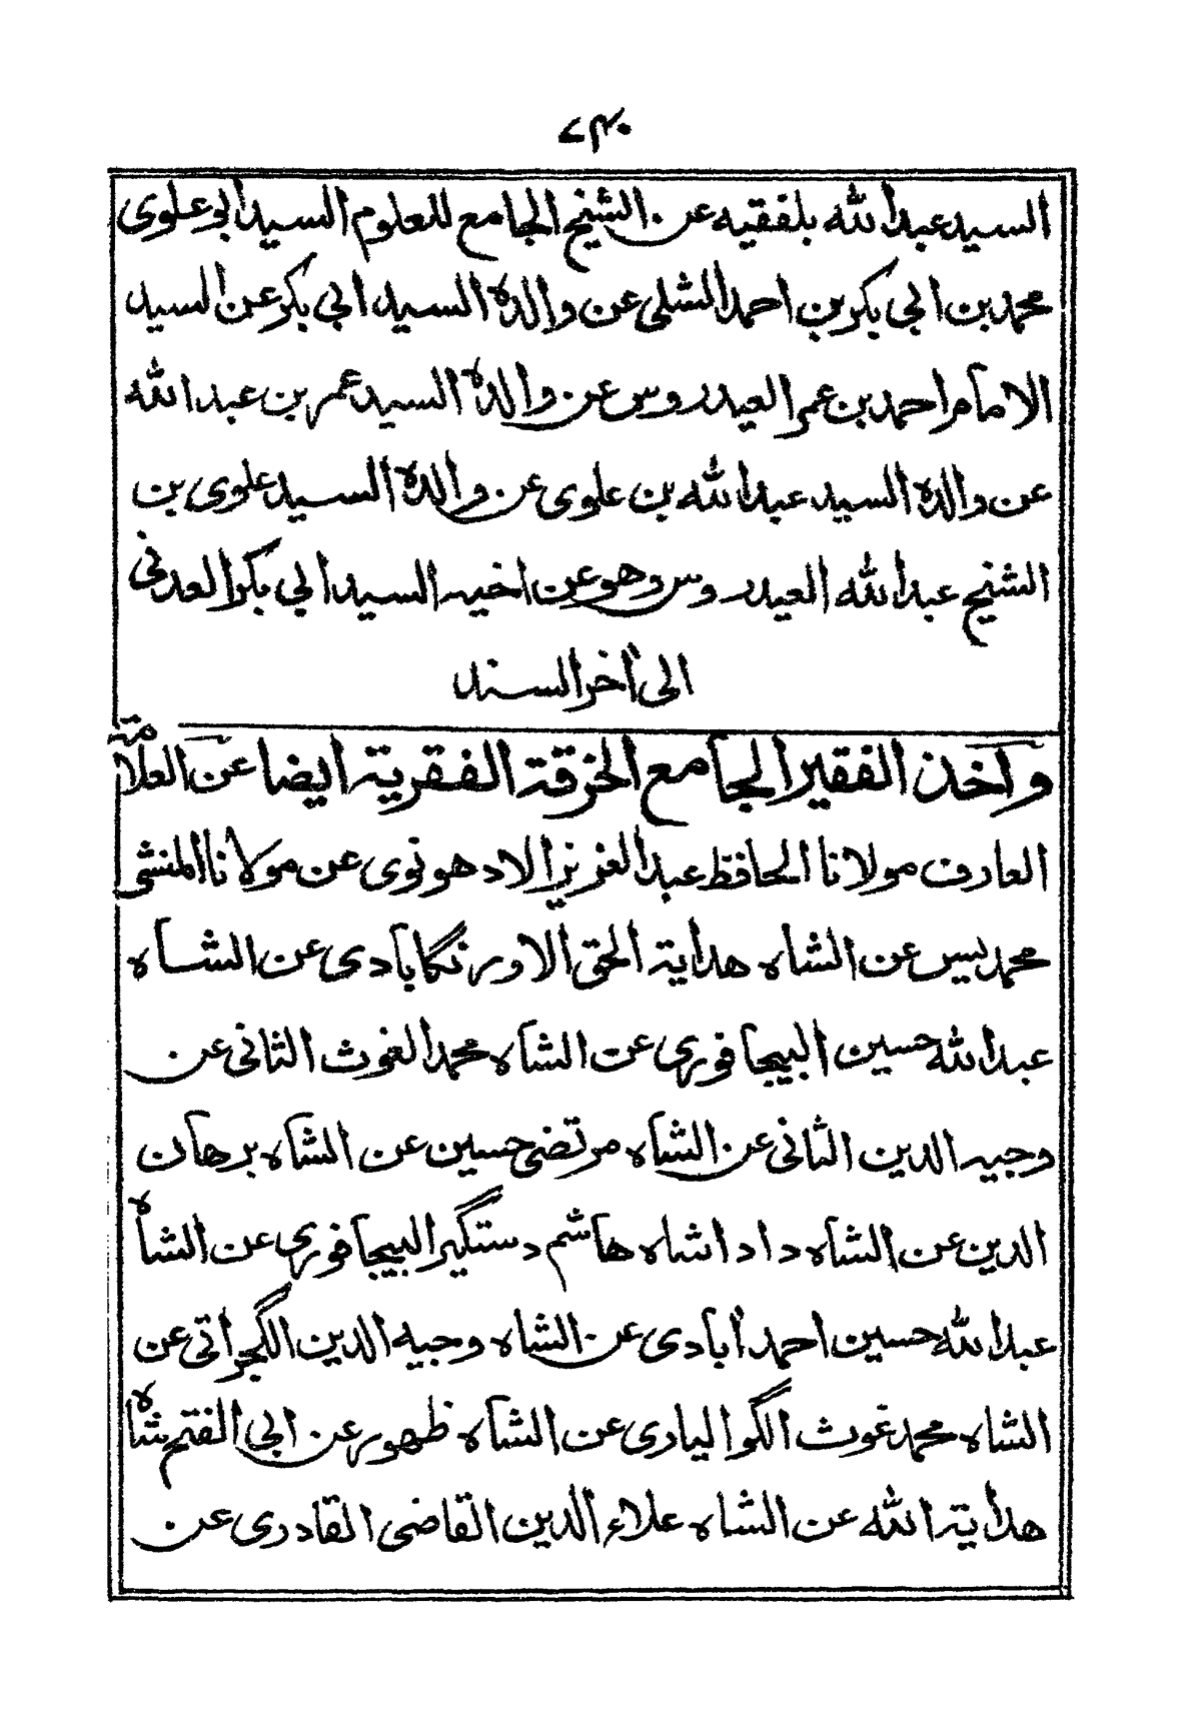 السيد عبد الله بلفقيه عن الشيخ الجامع للعلوم السيد ابو علوى
محمد بن ابي بكر بن احمد الشلى عن والده السيد ابي بكر عن السيد
الامام احمد بن عمر العيدروس عن والده السيد عمر بن عبد الله
عن والده السيد عبد الله بن علوى عن والده السيد علوى بن
الشيخ عبد الله العيدروس وهو عن اخيه السيد ابي بكر العدنى
الى أخر السند
واخذ الفقير الجامع الخرقة الفقرية ايضا عن العلامة
العارف مولانا الحافظ عبد العزيز الادهونوى عن مولانا المنشى
محمد يس عن الشاه هداية الحق الاورنگابادى عن الشاه
عبد الله حسين البيجافورى عن الشاه محمد الغوث الثانى عن
وجيه الدين الثانى عن الشاه مرتضى حسين عن الشاه برهان
الدين عن الشاه داداشاه هاشم دستگير البيجافورى عن الشاه
عبد الله حسين احمد أبادى عن الشاه وجيه الدين الگجراتى عن
الشاه محمد غوث الگواليارى عن الشاه ظهور عن ابي الفتح شاه
هداية الله عن الشاه علاء الدين القاضى القادرى عن